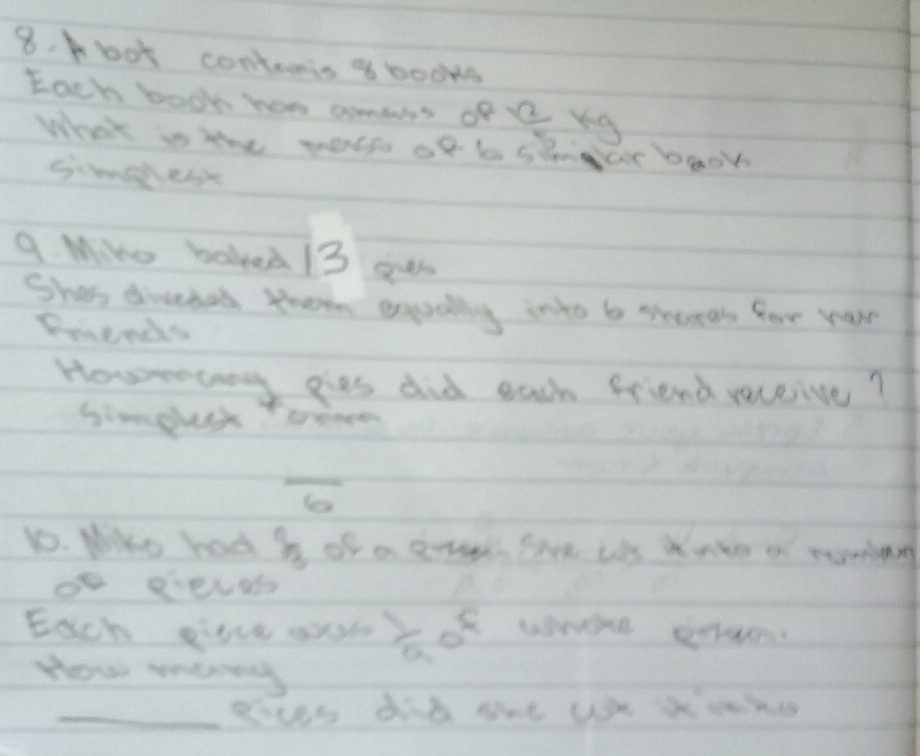 8. A bot contenis 8 books
Each book has amass of kg
What is the mass of 6 similar book
simplest
9. Miko baked 13 pies
Shes divided them equally into 6 shares for her
friends
Howmany pies did each friend receive?
simplest form
6
10. Miko had of a She cut it into a number
of pieces
Each piece was of whole
How many
pices did she cut it into